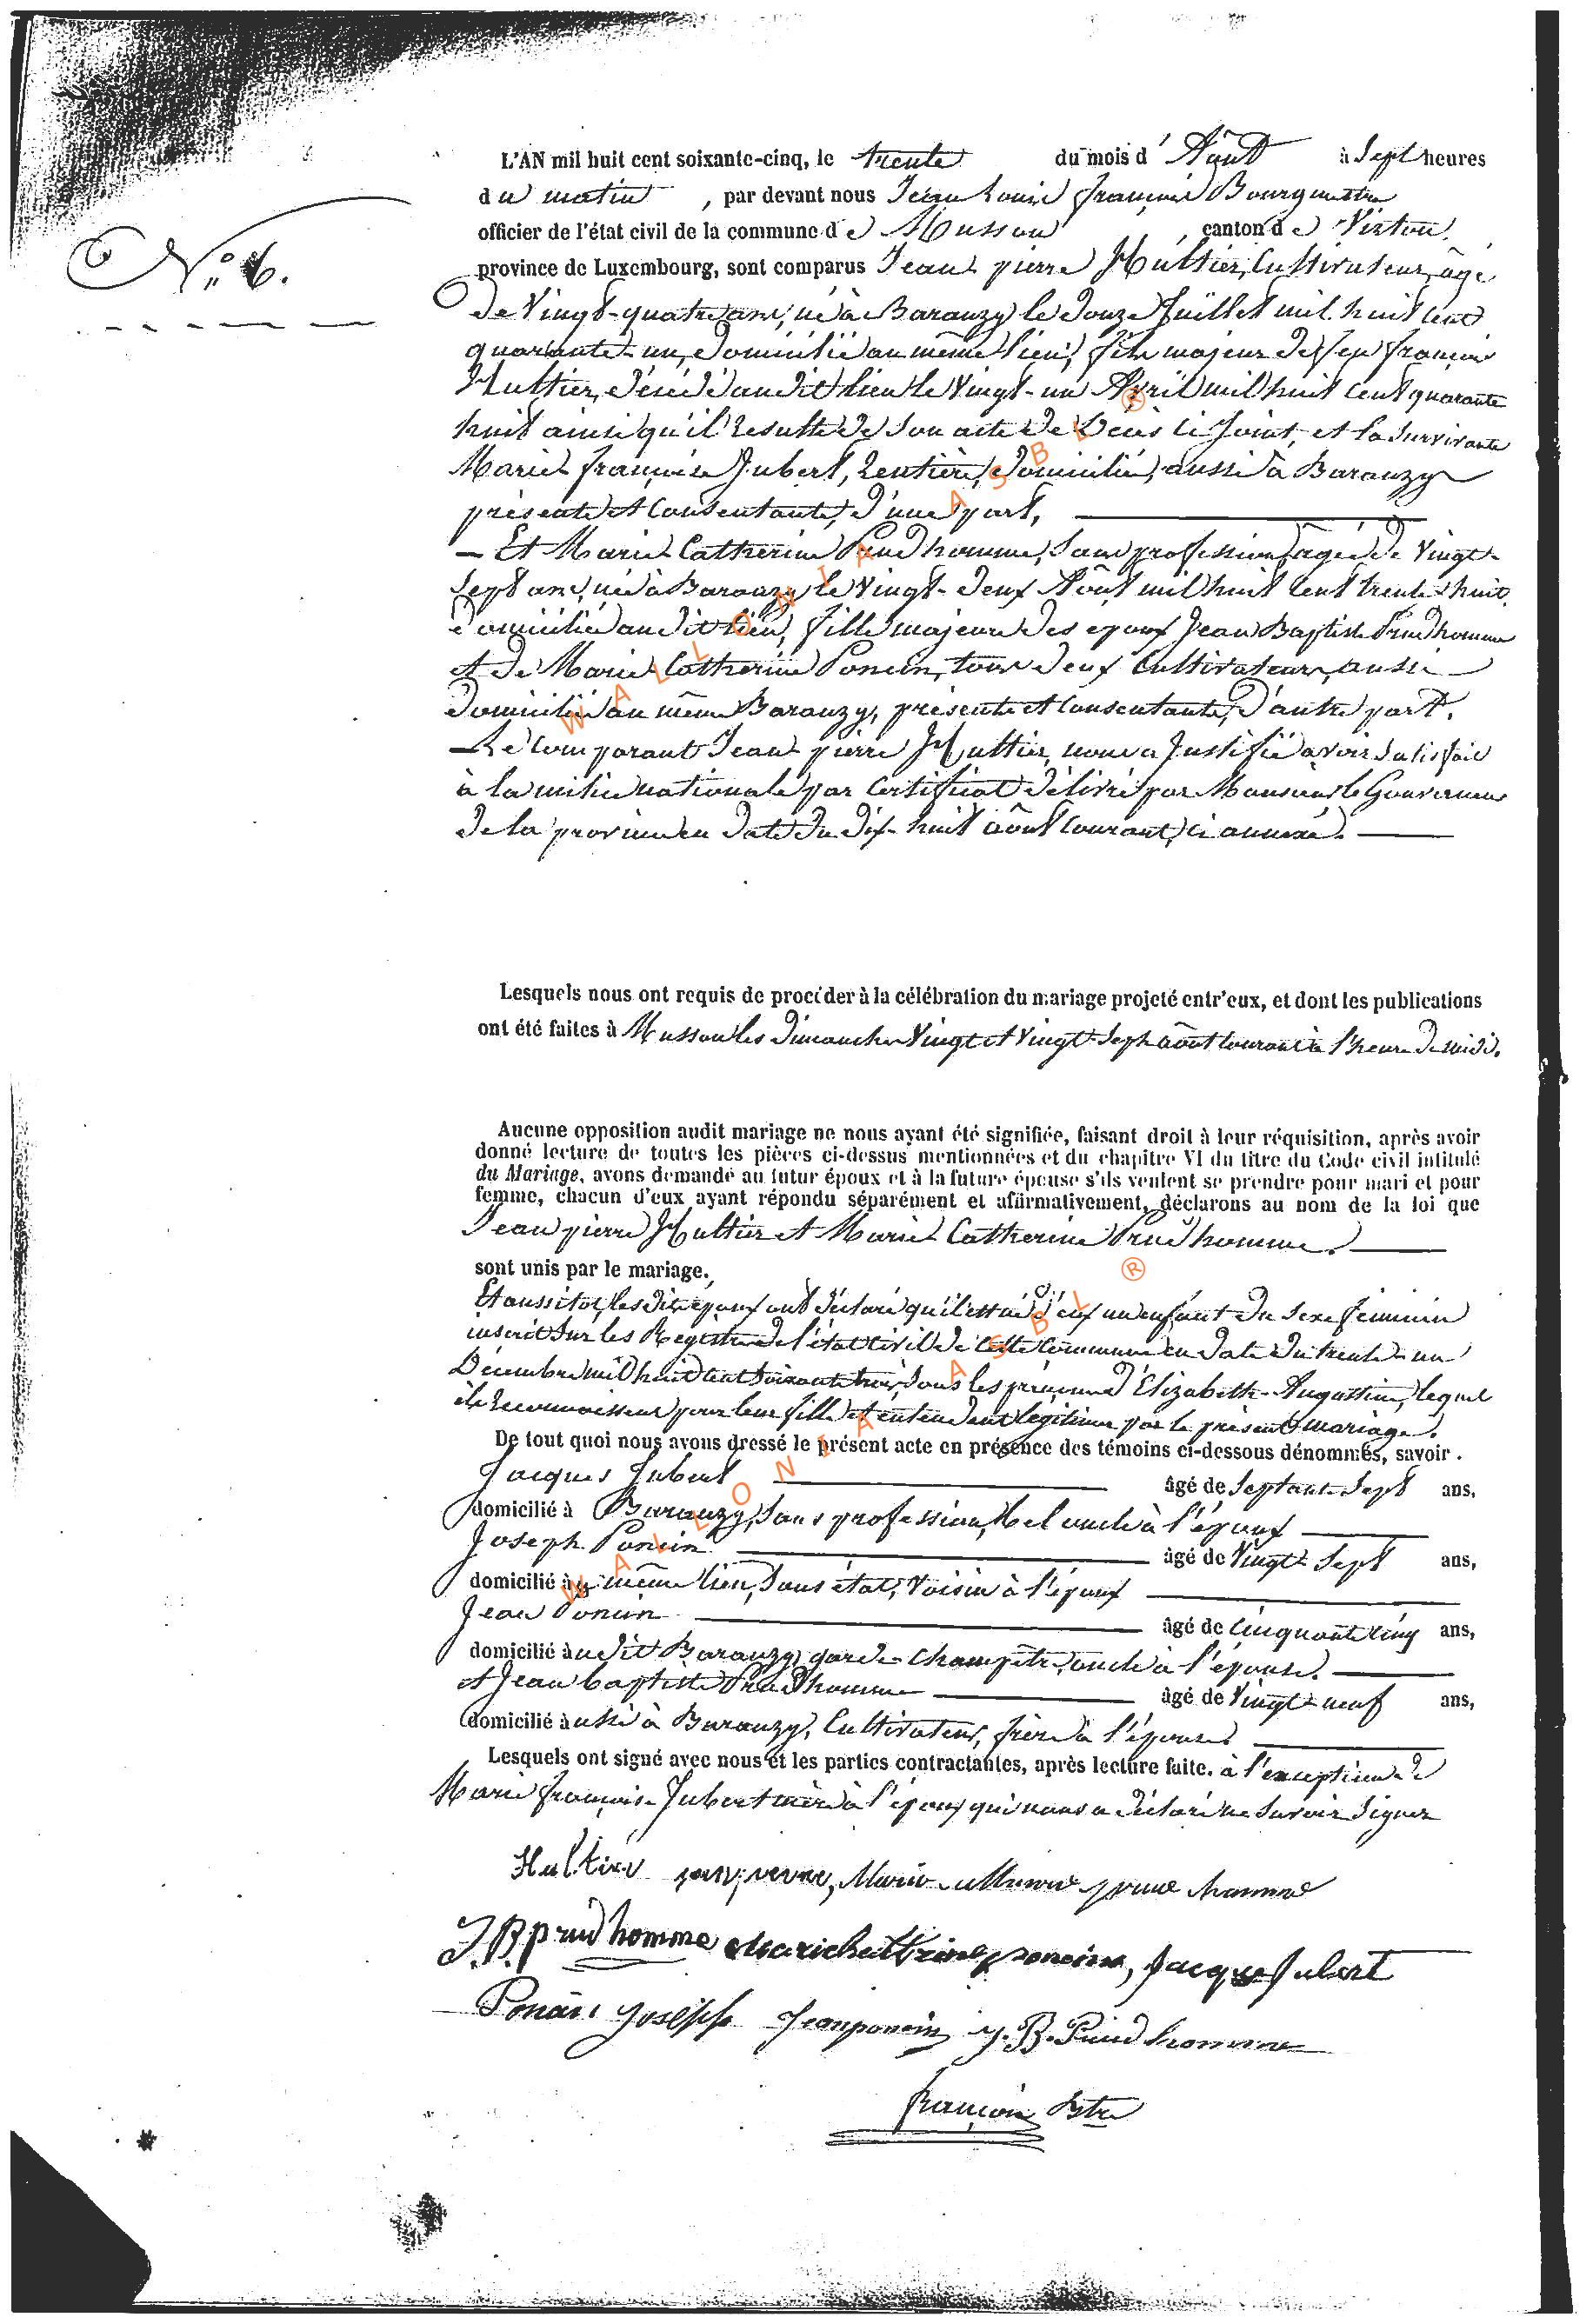 L'AN mil huit cent soixante-cinq, le trente du mois d'Août à Sept heures
du matin, par devant nous Jean Louis françois Bourgmestre
officier de l'état civil de la commune de Musson canton de Virton
N° 6.
province de Luxembourg, sont comparus Jean pierre Hultier, Cultivateur, âgé
de Vingt-quatre ans, né à Baranzy le douze Juillet mil huit cent
quarante-un, domicilié au même lieu, fils majeur de feu françois
Hultier, décédé audit lieu le Vingt-un Avril mil huit cent quarante
huit ainsi qu'il résulte de son acte de Décès ci Joint, et la Survivante
Marie françoise Jubert, Rentière, domiciliée, aussi à Baranzy
présente et Consentante, d'une part,
- Et Marie Catherine Prud'homme, Sans profession, agée de Vingt-
Sept ans, née à Baranzy le Vingt-deux Août mil huit cent trente-huit,
domiciliée audit lieu, fille majeure des epoux Jean Baptiste Prud'homme
et de Marie Catherine Poncin, tous deux Cultivateurs, aussi
domiciliés au même Baranzy, présents et Consentants, d'autre part.
- Le Comparant Jean pierre Hultier, nous a Justifié avoir Satisfait
à la milice nationale par Certificat délivré par Monsieur le Gouverneur
de la province en date du dix-huit août Courant, ci annexé.
Lesquels nous ont requis de procéder à la célébration du mariage projeté entr'eux, et dont les publications
ont été faites à Musson les dimanches Vingt et Vingt-Sept août Courant à l'heure de midi.
Aucune opposition audit mariage ne nous ayant été signifiée, faisant droit à leur réquisition, après avoir
donné lecture de toutes les pièces ci-dessus mentionnées et du chapitre VI du titre du Code civil intitulé
du Mariage, avons demandé au futur époux et à la future épouse s'ils veulent se prendre pour mari et pour
femme, chacun d'eux ayant répondu séparément et affirmativement, déclarons au nom de la loi que
Jean pierre Hultier et Marie Catherine Prud'homme.
sont unis par le mariage.
Et aussitot, les dits époux ont déclaré qu'il est né d'eux un enfant du Sexe féminin
inscrit Sur les Registres de l'état Civil de Cette Commune en date du trente-un
Décembre mil huit cent Soixante trois, Sous les prénoms d'Elizabeth-Augustine, lequel
ils Reconnoissent pour leur fille et entendent légitimer par le présent mariage.
De tout quoi nous avons dressé le présent acte en présence des témoins ci-dessous dénommés, savoir.
Jacques Jubert âgé de Septante Sept ans,
domicilié à Baranzy, Sans profession, bel oncle à l'époux
Joseph Poncin âgé de Vingt-Sept ans,
domicilié au même lieu, Sans état, Voisin à l'époux
Jean Poncin âgé de Cinquante Cinq ans,
domicilié audit Baranzy, garde-Champêtre, oncle à l'épouse.
et Jean baptiste Prud'homme âgé de Vingt-neuf ans,
domicilié aussi à Baranzy, Cultivateur, frère à l'épouse
Lesquels ont signé avec nous et les parties contractantes, après lecture faite. à l'exception de
Marie françoise Jubert mère à l'époux qui nous a déclaré ne Savoir Signer
Hultier jean pierre, Marie catherine prud homme
J.B. prud homme Marie chattrine poncin, Jacque Jubert
Poncin Joseph Jean poncin J. B. Prud homme
françois Bstre
WALLONIA ASBL ®
WALLONIA ASBL ®